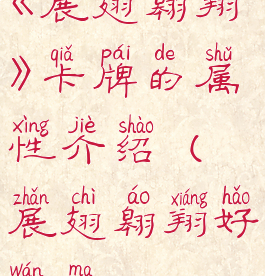 《展翅翱翔
qiǎ pái de shǔ
》卡牌的属
xìng jiè shào
性介绍（
zhǎn chì áo xiáng hǎo
展翅翱翔好
wán ma